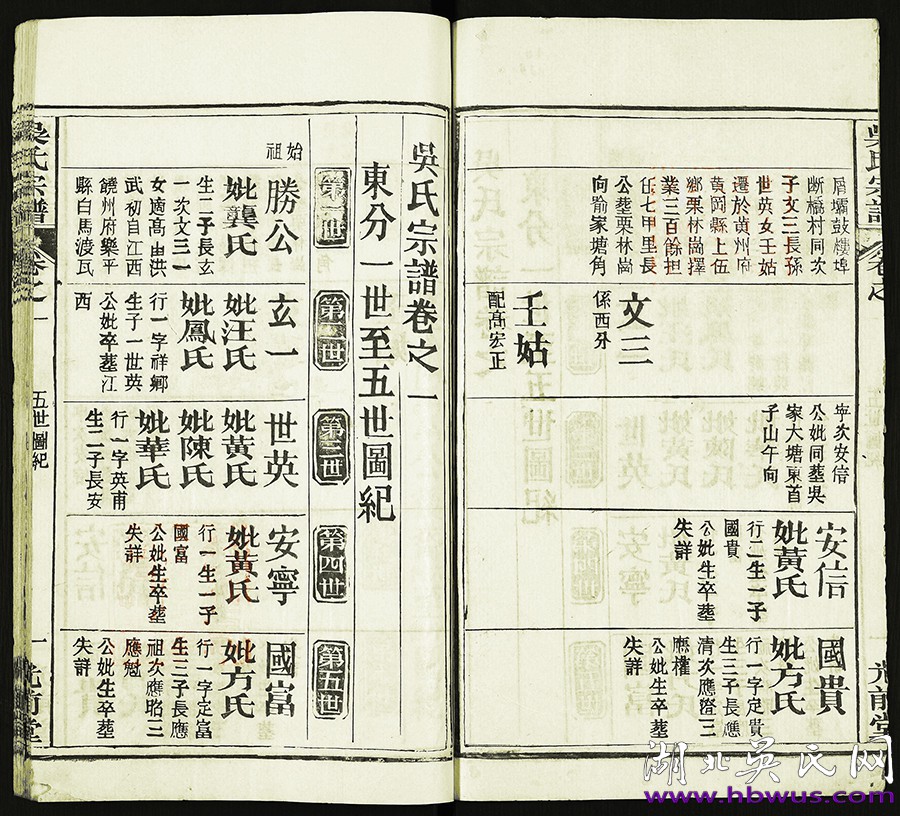 吳氏宗譜卷之一
東分一世至五世圖紀
第一世
第二世
第三世
第四世
第五世
始祖
勝公
妣龔氏
生二子長玄
一次文三一
女適高由洪
武初自江西
饒州府樂平
縣白馬渡瓦
玄一
妣汪氏
妣鳳氏
行一字祥卿
生子一世英
公妣卒塟江
西
世英
妣黃氏
妣陳氏
妣華氏
行一字英甫
生二子長安
安寧
妣黃氏
行一生一子
國富
公妣生卒塟
失詳
國富
妣方氏
行一字定富
生三子長應
祖次應昭三
應魁
公妣生卒塟
失詳
吳氏宗譜
卷之一
五世圖紀
一
光前堂
屑壩鼓樓埠
断橋村同次
子文三長孫
世英女壬姑
遷於黃州府
黃岡縣上伍
鄉栗林崗擇
業三百餘担
任七甲里長
公塟栗林崗
向喻家塘角
文三
係西分
壬姑
配高宏正
寧次安信
公妣同塟吳
家大塘東首
子山午向
安信
妣黃氏
行一生一子
國貴
公妣生卒塟
失詳
國貴
妣方氏
行一字定貴
生三子長應
清次應三
應權
公妣生卒塟
失詳
吳氏宗譜
卷之
五世圖紀
一
光前堂
湖北吴氏网
www.hbwus.com